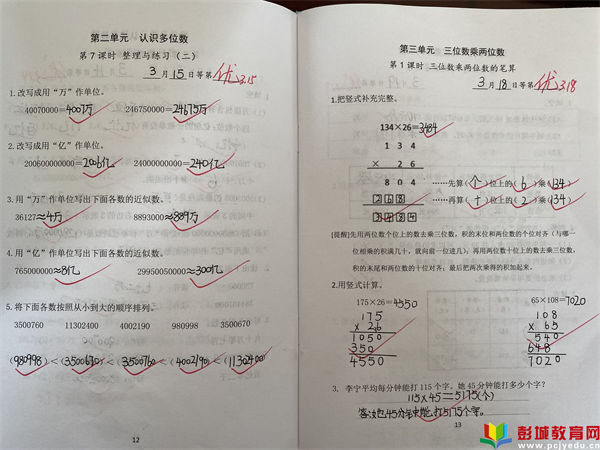 第二单元 认识多位数
第7课时 整理与练习（二）
3月15日等第优3.15
1.改写成用“万”作单位。
40070000=4007万 246750000=24675万
2.改写成用“亿”作单位。
200600000000=2006亿 24000000000=240亿
3.用“万”作单位写出下面各数的近似数。
36127≈4万 8893000≈889万
4.用“亿”作单位写出下面各数的近似数。
765000000≈8亿 29950050000≈300亿
5.将下面各数按照从小到大的顺序排列。
3500760 11302400 4002190 980998 3500670
(980998)<(3500670)<(3500760)<(4002190)<(11302400)
12
第三单元 三位数乘两位数
第1课时 三位数乘两位数的笔算
3月18日等第优3.18
1.把竖式补充完整。
134×26=3484
134
× 26
804 ……先算(个)位上的(6)乘(134)
268 ……再算(十)位上的(2)乘(134)
3484
[提醒]先用两位数个位上的数去乘三位数，积的末位和两位数的个位对齐（与哪一
位相乘的积满几十，就向前一位进几）；再用两位数十位上的数去乘三位数，
积的末尾和两位数的十位对齐；最后把两次乘得的积加起来。
2.用竖式计算。
175×26=4550 65×108=7020
175 108
× 26 × 65
1050 540
350 648
4550 7020
3. 李宁平均每分钟能打115个字。她45分钟能打多少个字？
115×45=5175(个)
答:她45分钟能打5175个字。
13
彭城教育网
www.pcjyedu.com